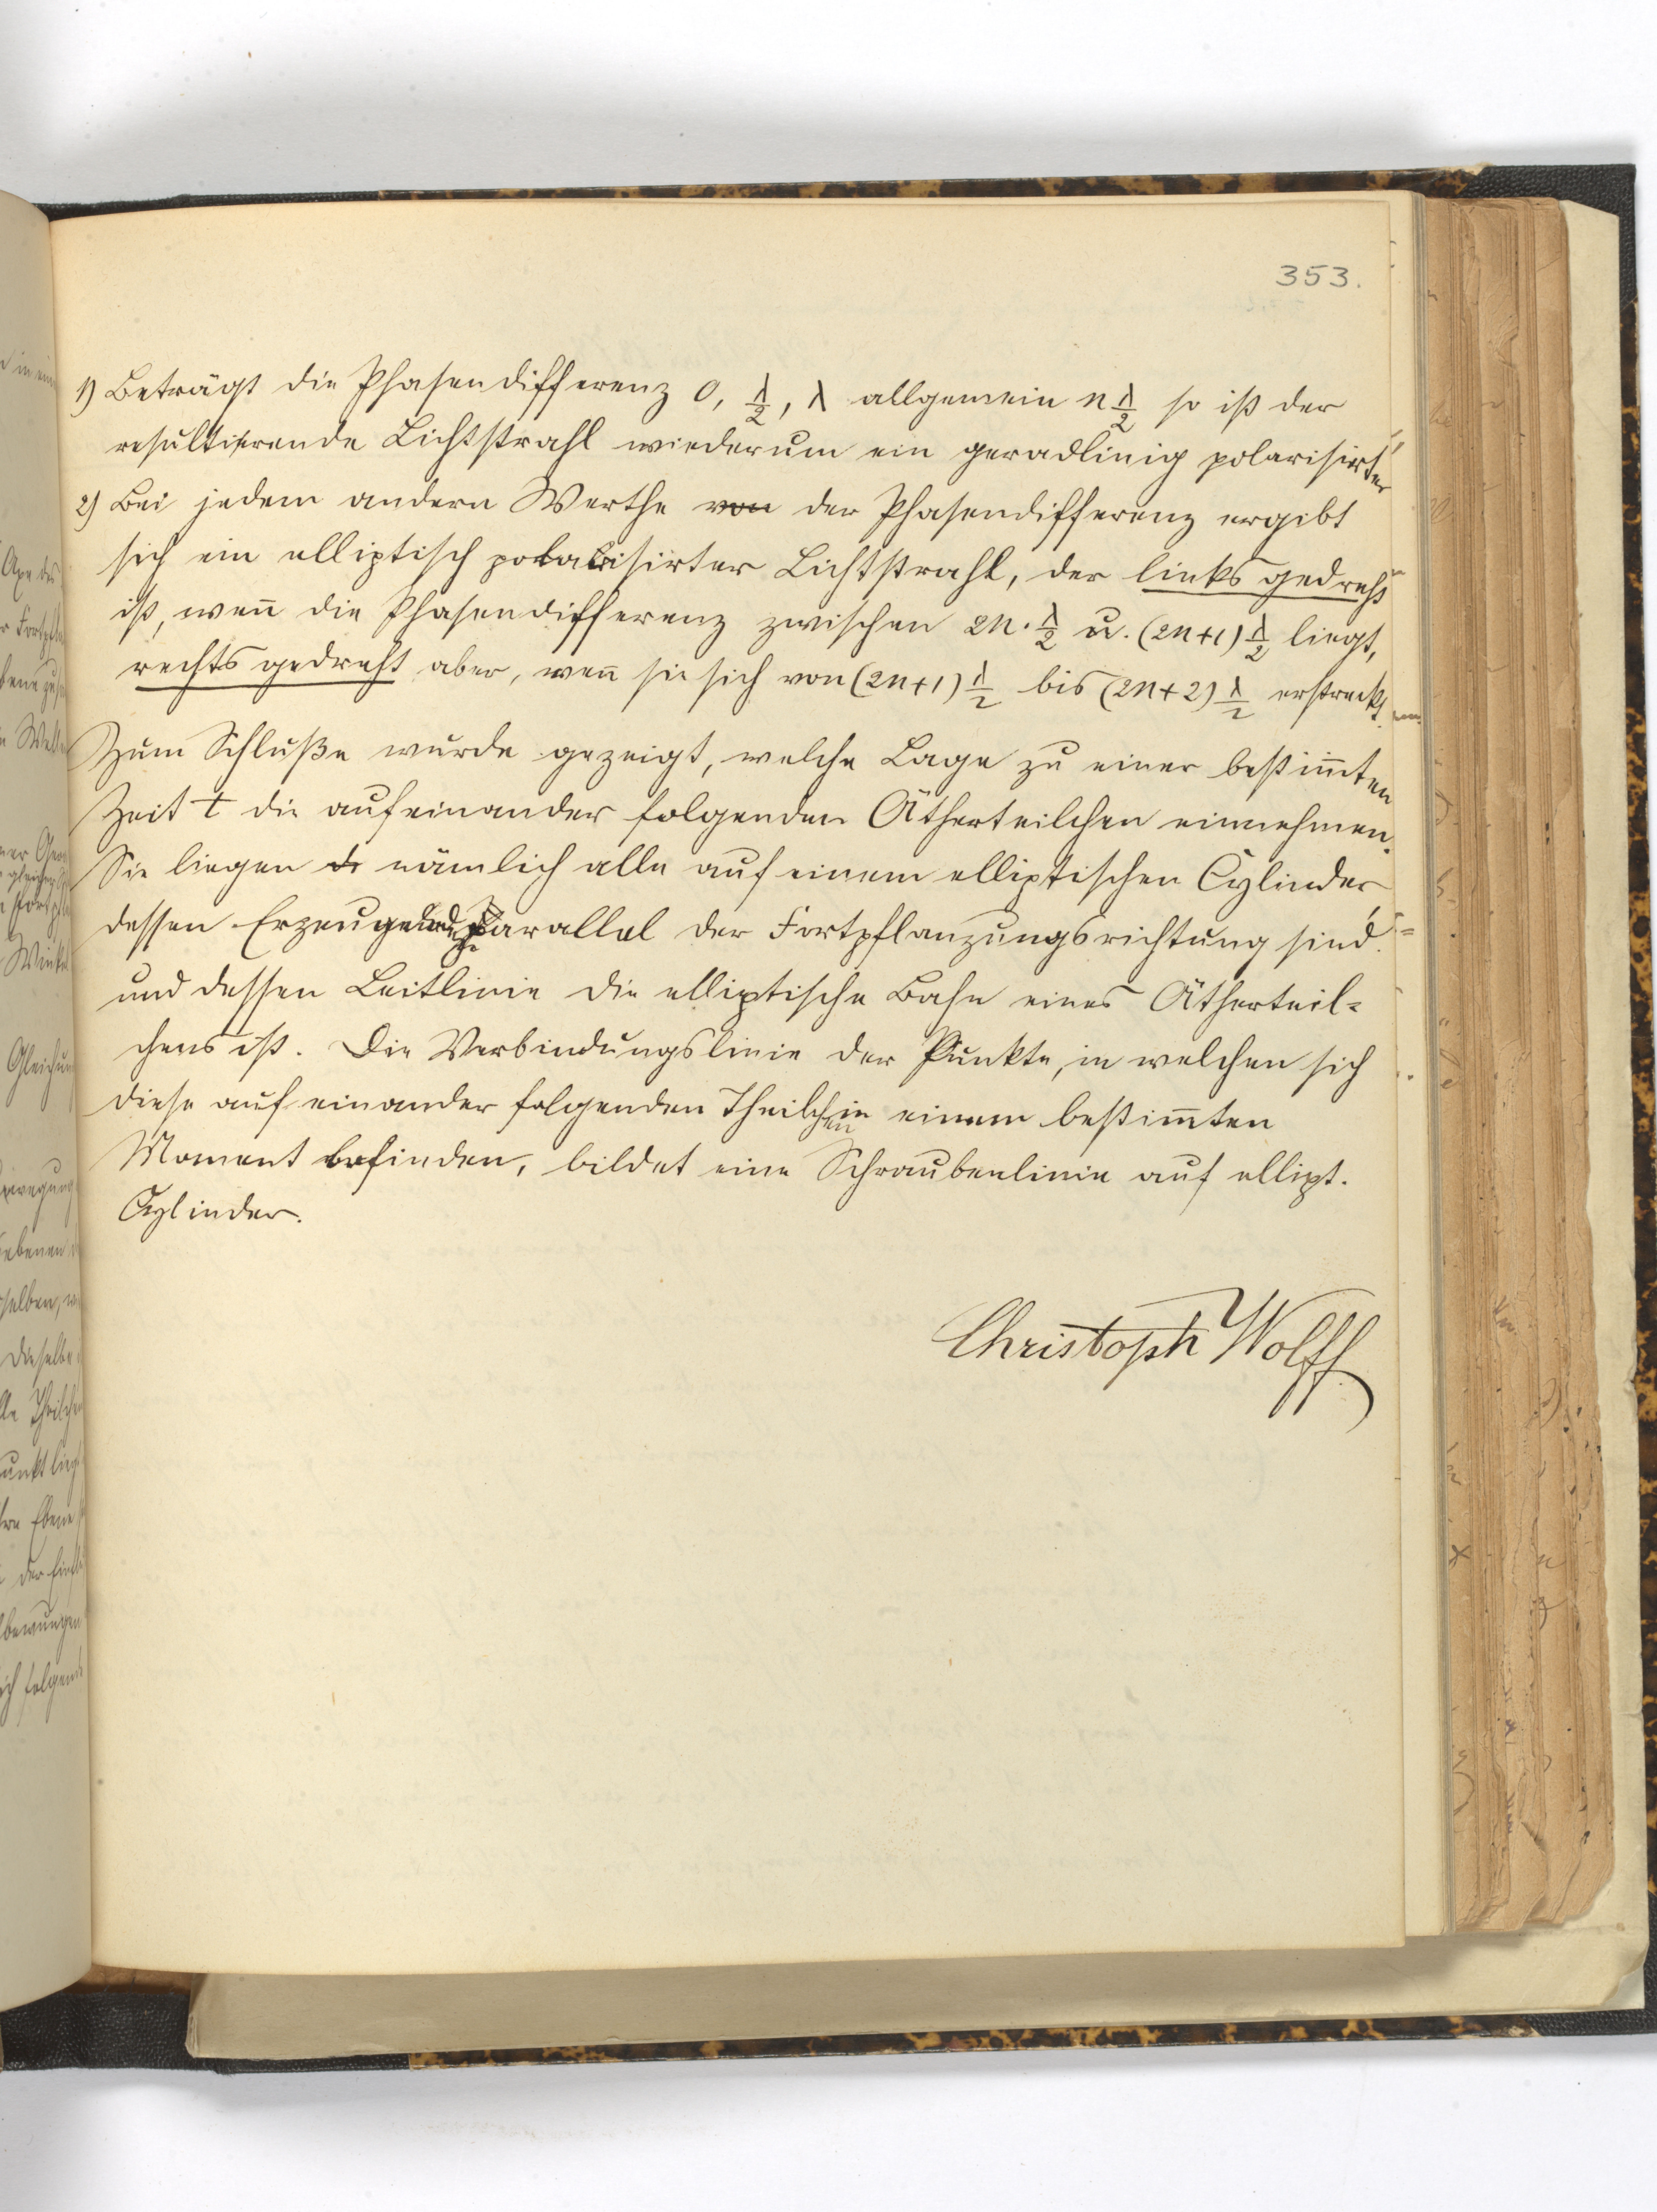 353.
1) Beträgt die Phasendifferenz 0, λ/2, λ allgemein n λ/2 so ist der
resultierende Lichtstrahl wiederum ein geradlinig polarisirter
2) Bei jedem andern Werthe von der Phasendifferenz ergibt
sich ein elliptisch polarisirter Lichtstrahl, der links gedreht
ist, wen̄ die Phasendifferenz zwischen 2n · λ/2 u. (2n+1) λ/2 liegt,
rechts gedreht aber, wen̄ sie sich von (2n+1) λ/2 bis (2n+2) λ/2 erstreckt.
Zum Schluße wurde gezeigt, welche Lage zu einer bestim̄ten
Zeit t die aufeinander folgenden Ätherteilchen einnehmen.
Sie liegen nämlich alle auf einem elliptischen Cylinder,
dessen Erzeugende parallel der Fortpflanzungsrichtung sind
und dessen Leitlinie die elliptische Bahn eines Ätherteil-
chens ist. Die Verbindungslinie der Punkte, in welchen sich
diese auf einander folgenden Theilchen in einem bestim̄ten
Moment befinden, bildet eine Schraubenlinie auf ellipt.
Cylinder.
Christoph Wolff